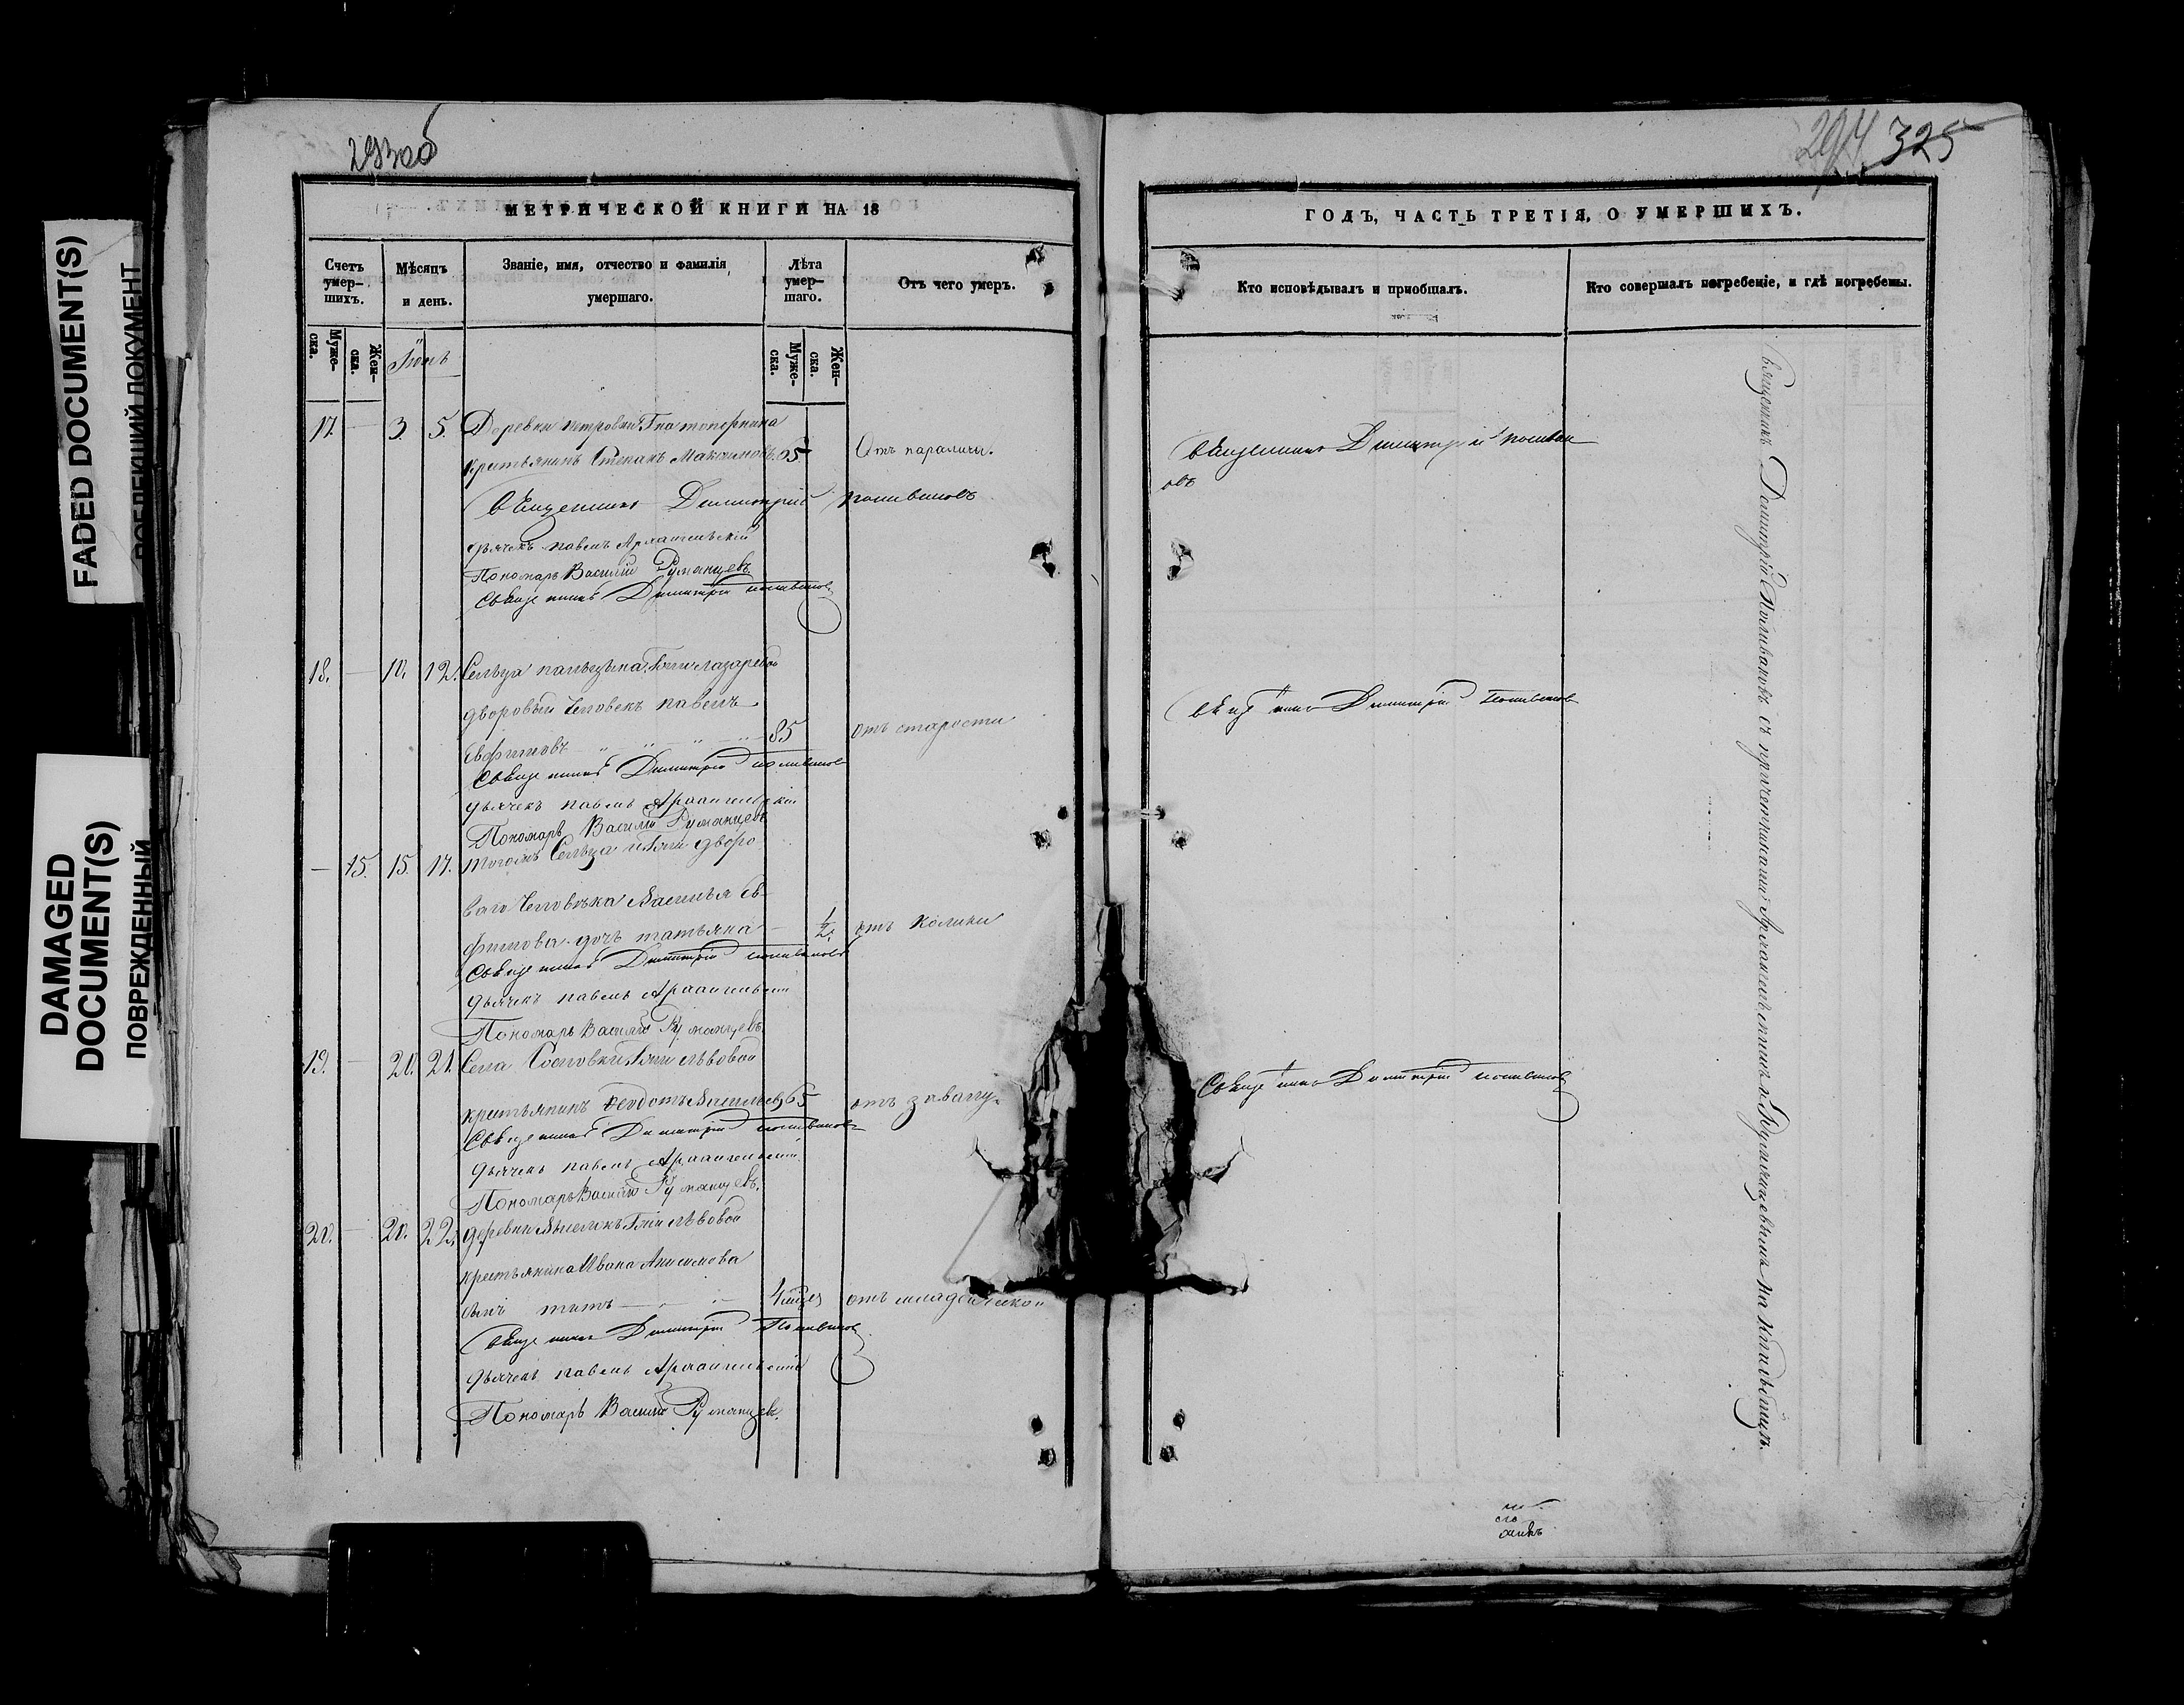 FADED DOCUMENT(S)
DAMAGED
DOCUMENT(S)
ПОВРЕЖДЕННЫЙ
293об
294 325
МЕТРИЧЕСКОЙ КНИГИ НА 18
Счетъ умер-шихъ.
Мѣсяцъ и день.
Званіе, имя, отчество и фамилія умершаго.
Лѣта умер-шаго.
Отъ чего умеръ.
Муже-ска.
Жен-ска.
Муже-ска.
Жен-ска.
17. — 3. 5. Деревни Петровки
крестьянинъ Степанъ Максимовъ 65 Отъ паралича.
Священникъ Димитрій Поливановъ
дьячекъ павелъ Архангельскій
Пономарь Василій Румянцевъ.
Священникъ Димитрій Поливановъ
18. — 10. 12. Сельца Гжи Лазаревой
дворовый человекъ павелъ
Евфимовъ 85 отъ старости
Священникъ Димитрій Поливановъ
дьячекъ павелъ Архангельскій
Пономарь Василій Румянцевъ
— 15. 15. 17. тогожъ Сельца Гжи дворо
ваго человѣка Василья Ев-
фимова дочь татьяна 1/2 отъ колики
Священникъ Димитрій Поливановъ
дьячекъ павелъ Архангельскій
Пономарь Василій Румянцевъ.
19. — 20. 21. Села Сосновки Гжи Львовой
крестьянинъ Феодотъ Васильевъ 65 отъ завалу.
Священникъ Димитрій Поливановъ
дьячекъ павелъ Архангельскій
Пономарь Василій Румянцевъ.
20. — 20. 22. деревни Гжи Львовой
крестьянина Ивана Анисимова
сынъ титъ отъ младенческой
Священникъ Димитрій Поливановъ
дьячекъ павелъ Архангельскій
Пономарь Василій Румянцевъ.
ГОДЪ, ЧАСТЬ ТРЕТІЯ, О УМЕРШИХЪ.
Кто исповѣдывалъ и пріобщалъ.
Кто совершалъ погребеніе, и гдѣ погребены.
Священникъ Димитрій Поливан
овъ
Священникъ Димитрій Поливановъ
Священникъ Димитрій Поливановъ
Священникъ Димитрій Поливановъ съ причетниками Архангельскимъ и Румянцевымъ на кладбищѣ.